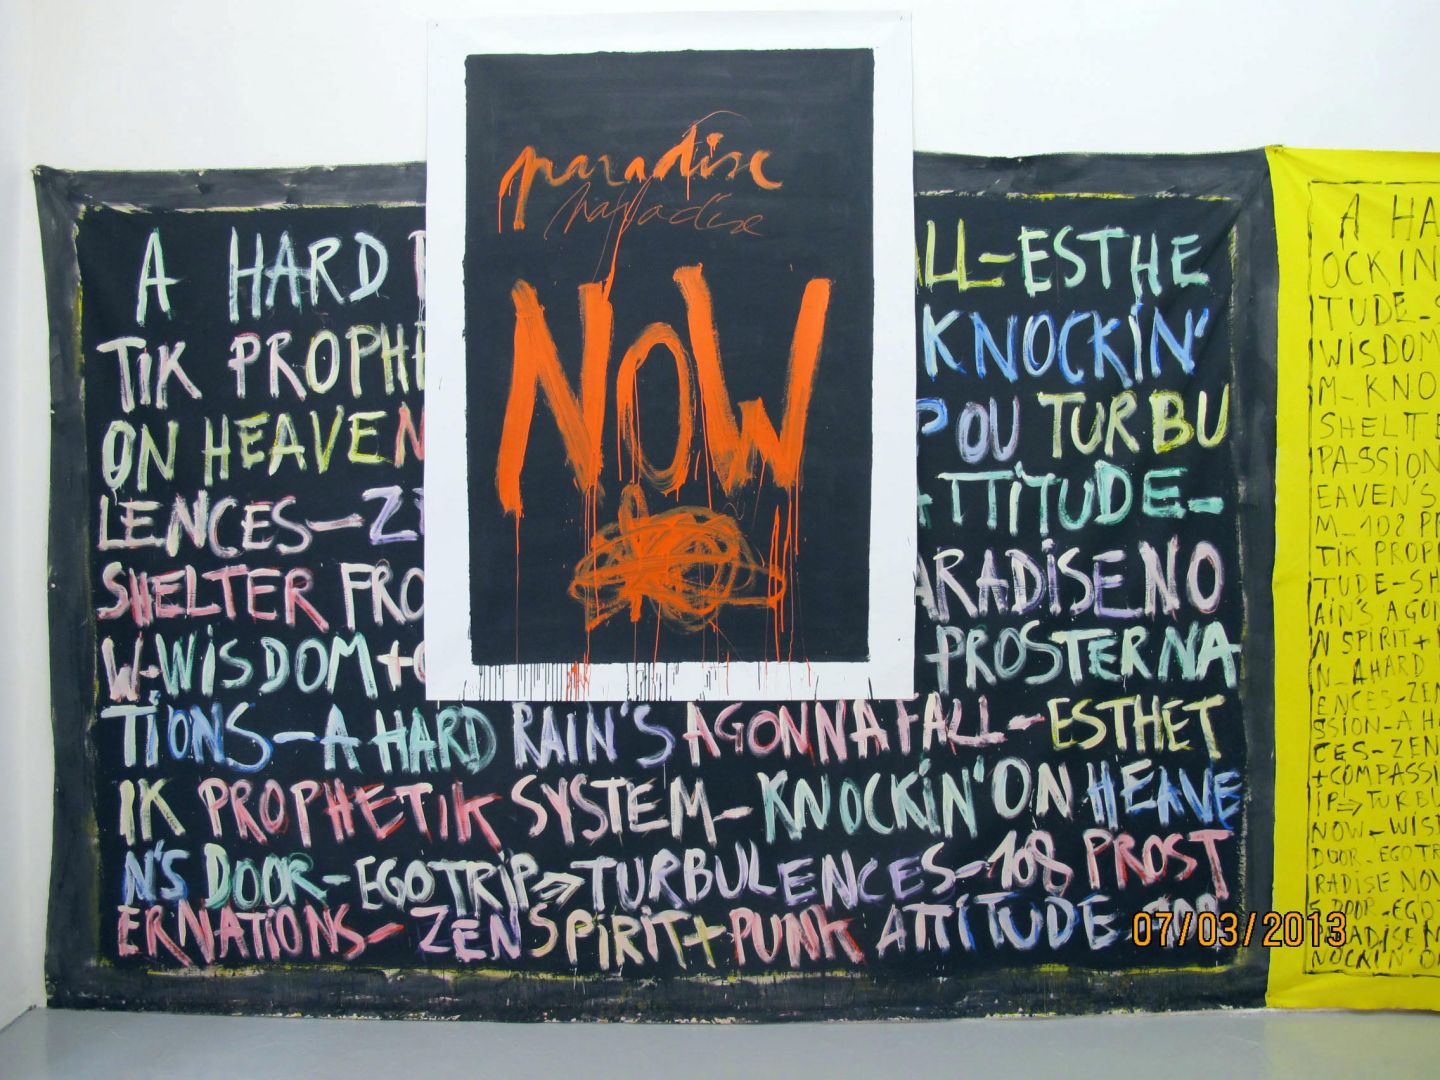 paradise
paradise
NOW
A HARD
LL-ESTHE
TIK PROPHE
KNOCKIN'
ON HEAVEN
OU TURBU
LENCES-Z
ATTITUDE-
SHELTER FRO
ARADISE NO
W-WISDOM+
-PROSTERNA
TIONS-A HARD RAIN'S A GONNA FALL-ESTHET
IK PROPHETIK SYSTEM-KNOCKIN' ON HEAVE
N'S DOOR-EGOTRIP⇒TURBULENCES-108 PROST
ERNATIONS-ZEN SPIRIT+PUNK ATTITUDE-108
A HA
OCKIN
TUDE-S
WISDOM
M_KNO
SHELTE
PASSION
EAVEN'S
M_108 PR
TIK PROP
TUDE-SH
AIN'S A GON
N SPIRIT+
N_A HARD
ENCES-ZEN
SSION-A H
CES-ZEN
+COMPASSI
IP⇒TURBU
NOW-WISD
DOOR-EGOTR
RADISE NOW
S DOOR-EGOT
RADISE N
NOCKIN' O
07/03/2013